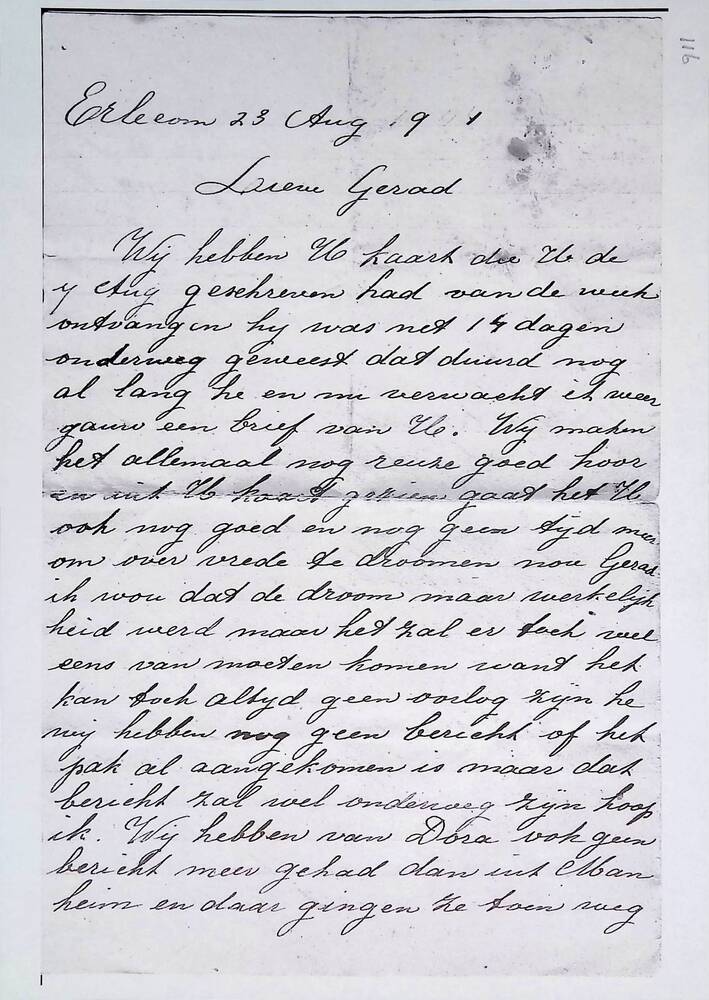 116
Erlecom 23 Aug 19 1
Lieve Gerad
Wij hebben U kaart die U de
7 Aug geschreven had van de week
ontvangen hij was net 14 dagen
onderweg geweest dat duurd nog
al lang he en nu verwacht ik weer
gauw een brief van U. Wij maken
het allemaal nog reuze goed hoor
en uit U kaart gezien gaat het U
ook nog goed en nog geen tijd meer
om over vrede te droomen nou Gerad
ik wou dat de droom maar werkelijk
heid werd maar het zal er toch wel
eens van moeten komen want het
kan toch altijd geen oorlog zijn he
wij hebben nog geen bericht of het
pak al aangekomen is maar dat
bericht zal wel onderweg zijn hoop
ik. Wij hebben van Dora ook geen
bericht meer gehad dan uit Man
heim en daar gingen ze toen weg